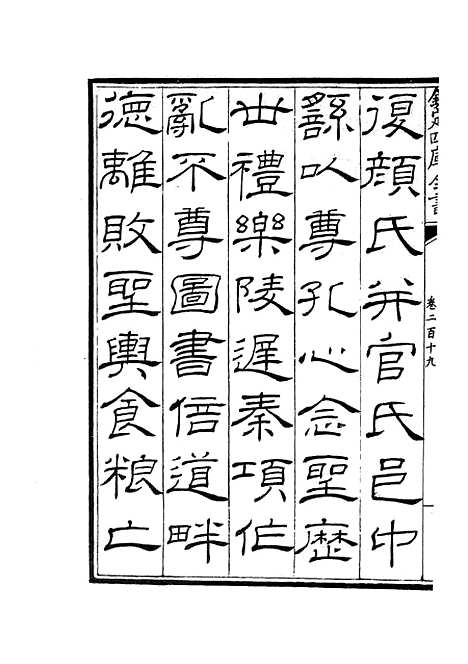 欽定四庫全書 卷二百十九
復顔氏并官氏邑中
繇以尊孔心念聖歷
世禮樂陵遲秦項作
亂不尊圖書倍道畔
德離敗聖輿食粮亡